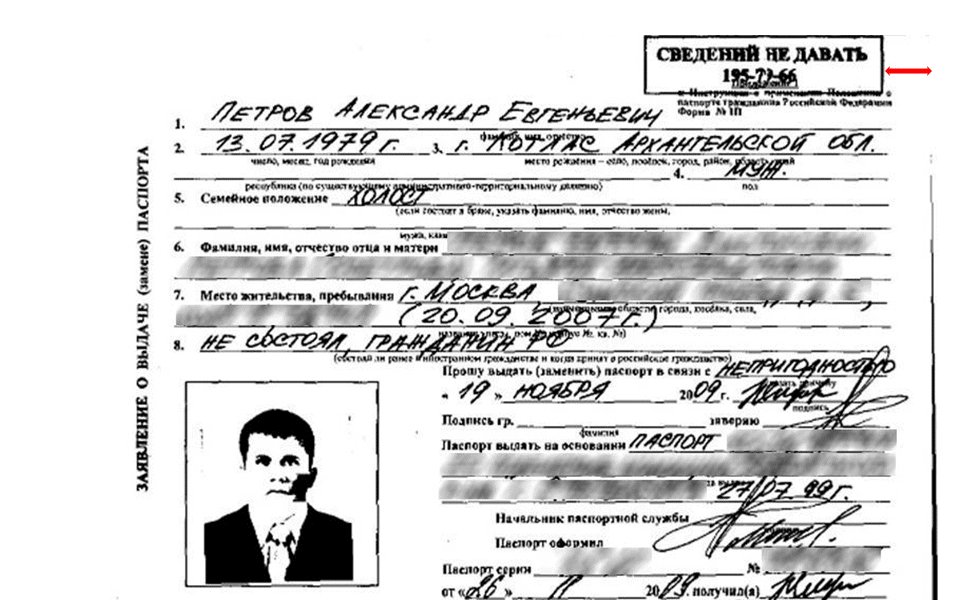 СВЕДЕНИЙ НЕ ДАВАТЬ
195-79-66
к Инструкции о применении Положения о
паспорте гражданина Российской Федерации
Форма № 1П
ЗАЯВЛЕНИЕ О ВЫДАЧЕ (замене) ПАСПОРТА
1. ПЕТРОВ АЛЕКСАНДР ЕВГЕНЬЕВИЧ
фамилия, имя, отчество
2. 13.07.1979 г. 3. г. КОТЛАС АРХАНГЕЛЬСКОЙ ОБЛ.
число, месяц, год рождения место рождения – село, посёлок, город, район, область, край
4. МУЖ.
республика (по существующему административно-территориальному делению) пол
5. Семейное положение ХОЛОСТ
(если состоит в браке, указать фамилию, имя, отчество жены,
мужа, кем
6. Фамилия, имя, отчество отца и матери
7. Место жительства, пребывания г. МОСКВА
области города, посёлка, села,
(20.09.2007 г.)
8. НЕ СОСТОЯЛ, ГРАЖДАНИН РФ
(состоял ли ранее в иностранном гражданстве и когда принят в российское гражданство)
Прошу выдать (заменить) паспорт в связи с НЕПРИГОДНОСТЬЮ
указать причину
« 19 » НОЯБРЯ 2009 г.
подпись
Подпись гр. заверяю
фамилия
Паспорт выдать на основании ПАСПОРТ
27/07.99 г.
Начальник паспортной службы
Паспорт оформил
Паспорт серии №
от «26» 11 2009. получил(а)